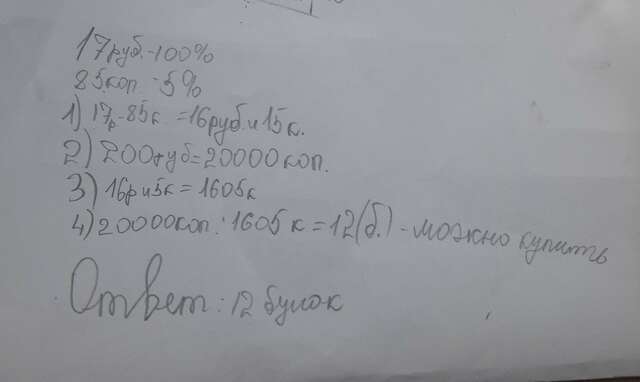 17руб.-100%
85коп -5%
1) 17р-85к =16руб.и15к.
2) 200руб=20000коп.
3) 16ри5к = 1605к
4) 20000коп : 1605 к = 12(б.) - можно купить
Ответ: 12 булок